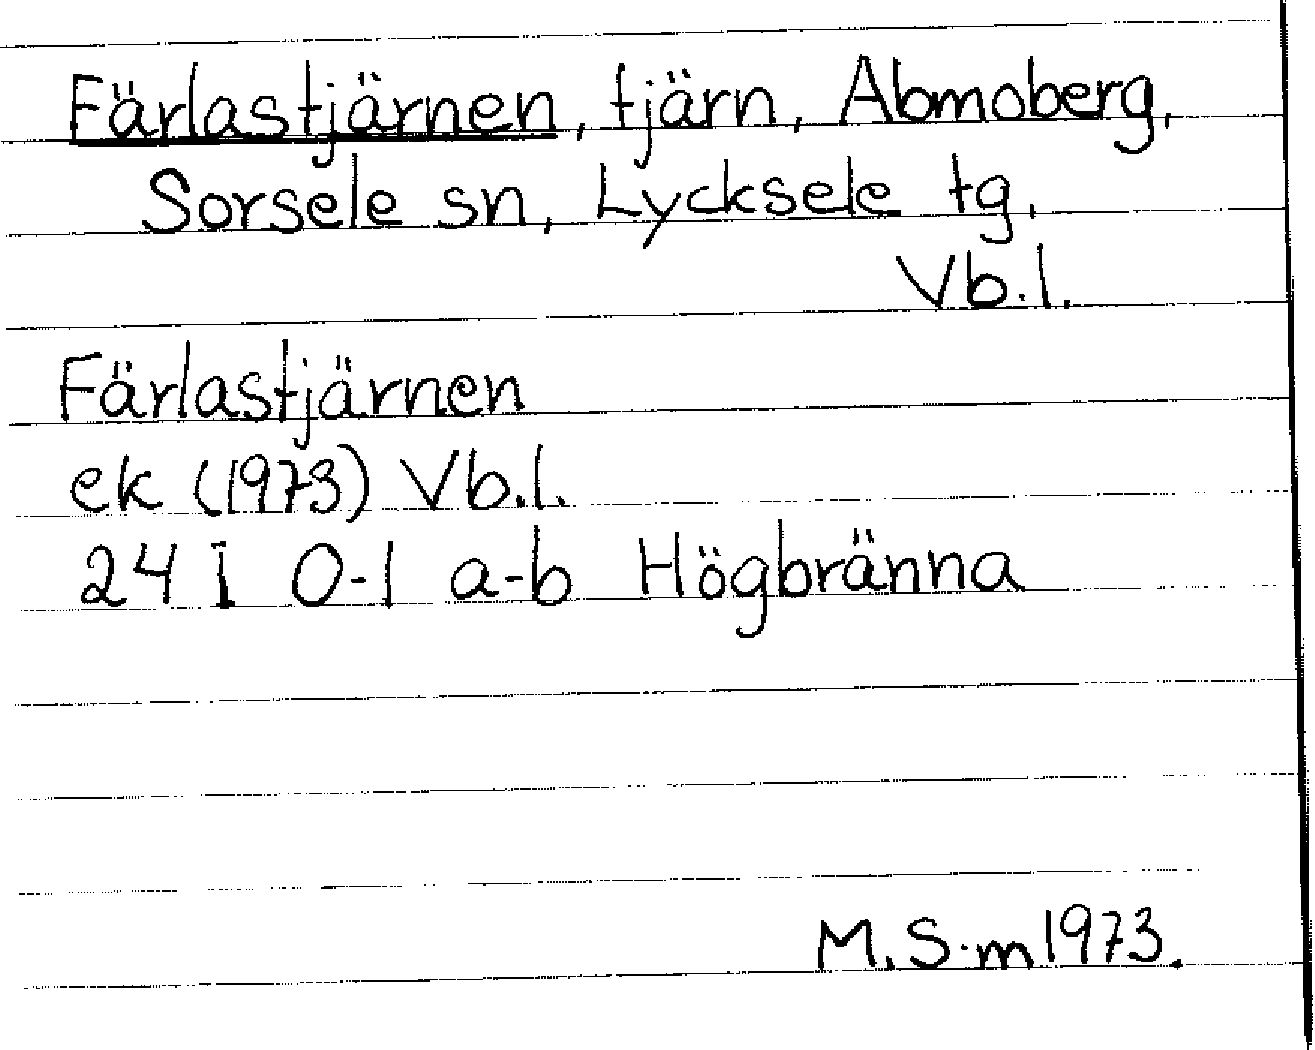 Färlastjärnen, tjärn, Abmoberg,
Sorsele sn, Lycksele tg,
Vb.l.
Färlastjärnen
ek (1973) Vb.l.
24 I 0-1 a-b Högbränna
M.S.m 1973.